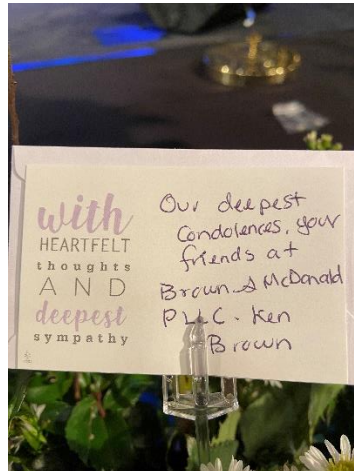 with
HEARTFELT
thoughts
AND
deepest
sympathy
Our deepest
Condolences, your
friends at
Brown & McDonald
PLLC. Ken
Brown